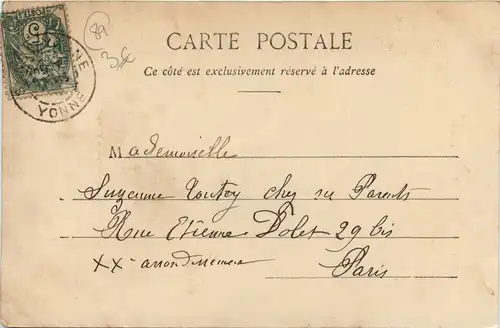 89
3€
5
NE
YONNE
CARTE POSTALE
Ce côté est exclusivement réservé à l'adresse
Mademoiselle
Suzanne Toutey chez ses Parents
Rue Etienne Dolet 29 bis
XX arrondissement
Paris